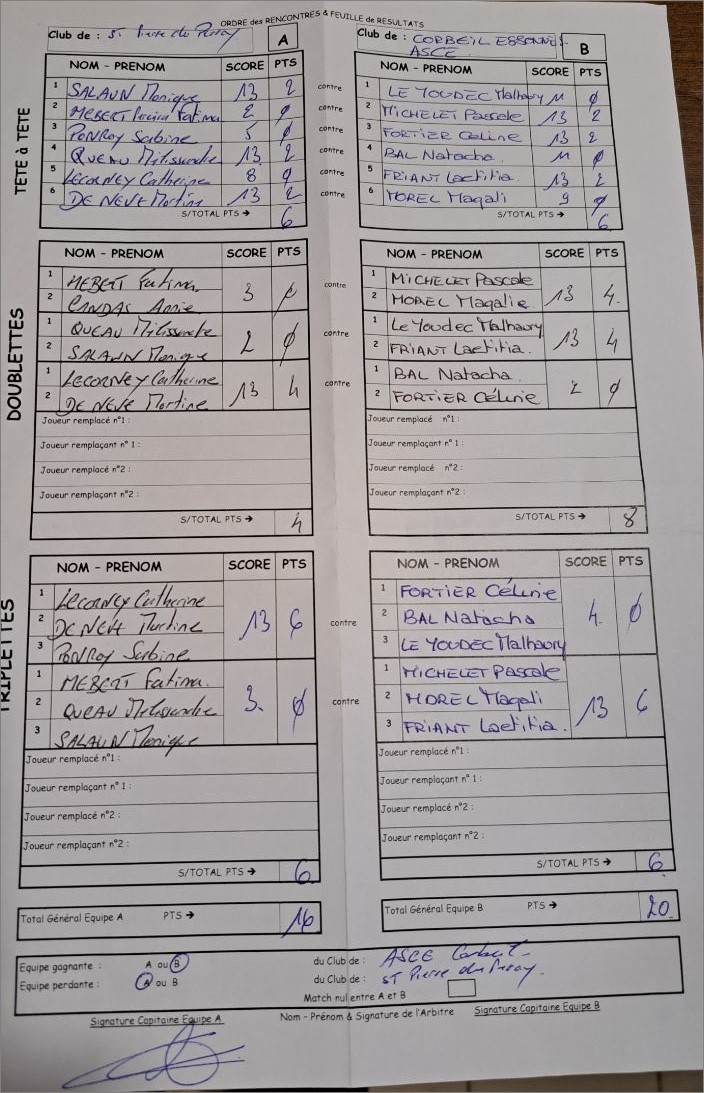 ORDRE des RENCONTRES & FEUILLE de RESULTATS
Club de : St Pierre du Perray A
Club de : CORBEIL ESSONNES- ASCE B
TETE à TETE
NOM - PRENOM SCORE PTS
1 SALAUN Monique 13 2
2 HEBERT Fatima 2 0
3 PONROY Sabine 5 0
4 QUEAU Mélissandre 13 2
5 LECORNEY Catherine 8 0
6 DE NEVE Martine 13 2
S/TOTAL PTS → 6
contre
contre
contre
contre
contre
contre
NOM - PRENOM SCORE PTS
1 LE YOUDEC Malhaury 11 0
2 MICHELET Pascale 13 2
3 FORTIER Céline 13 2
4 BAL Natacha 11 0
5 FRIANT Laetitia 13 2
6 MOREL Magali 9 0
S/TOTAL PTS → 6
DOUBLETTES
NOM - PRENOM SCORE PTS
1 HEBERT Fatima
2 CANDAS Annie 3 0
1 QUEAU Mélissandre
2 SALAUN Monique 2 0
1 LECORNEY Catherine
2 DE NEVE Martine 13 4
Joueur remplacé n°1 :
Joueur remplaçant n° 1 :
Joueur remplacé n°2 :
Joueur remplaçant n°2 :
S/TOTAL PTS → 4
contre
contre
contre
NOM - PRENOM SCORE PTS
1 MICHELET Pascale
2 MOREL Magalie 13 4
1 Le Youdec Malhaury
2 FRIANT Laetitia. 13 4
1 BAL Natacha
2 FORTIER Céline 2 0
Joueur remplacé n°1 :
Joueur remplaçant n° 1 :
Joueur remplacé n°2 :
Joueur remplaçant n°2 :
S/TOTAL PTS → 8
TRIPLETTES
NOM - PRENOM SCORE PTS
1 LECORNEY Catherine
2 DE NEVE Martine 13 6
3 PONROY Sabine
1 HEBERT Fatima.
2 QUEAU Mélissandre 3. 0
3 SALAUN Monique
Joueur remplacé n°1 :
Joueur remplaçant n° 1 :
Joueur remplacé n°2 :
Joueur remplaçant n°2 :
S/TOTAL PTS → 6
contre
contre
NOM - PRENOM SCORE PTS
1 FORTIER Céline
2 BAL Natacha 4. 0
3 LE YOUDEC Malhaury
1 MICHELET Pascale
2 MOREL Magali 13 6
3 FRIANT Laetitia.
Joueur remplacé n°1 :
Joueur remplaçant n° 1 :
Joueur remplacé n°2 :
Joueur remplaçant n°2 :
S/TOTAL PTS → 6
Total Général Equipe A PTS → 16
Total Général Equipe B PTS → 20
Equipe gagnante : A ou B du Club de : ASCE Corbeil
Equipe perdante : A ou B du Club de : ST Pierre du Perray.
Match nul entre A et B
Signature Capitaine Equipe A Nom - Prénom & Signature de l'Arbitre Signature Capitaine Equipe B